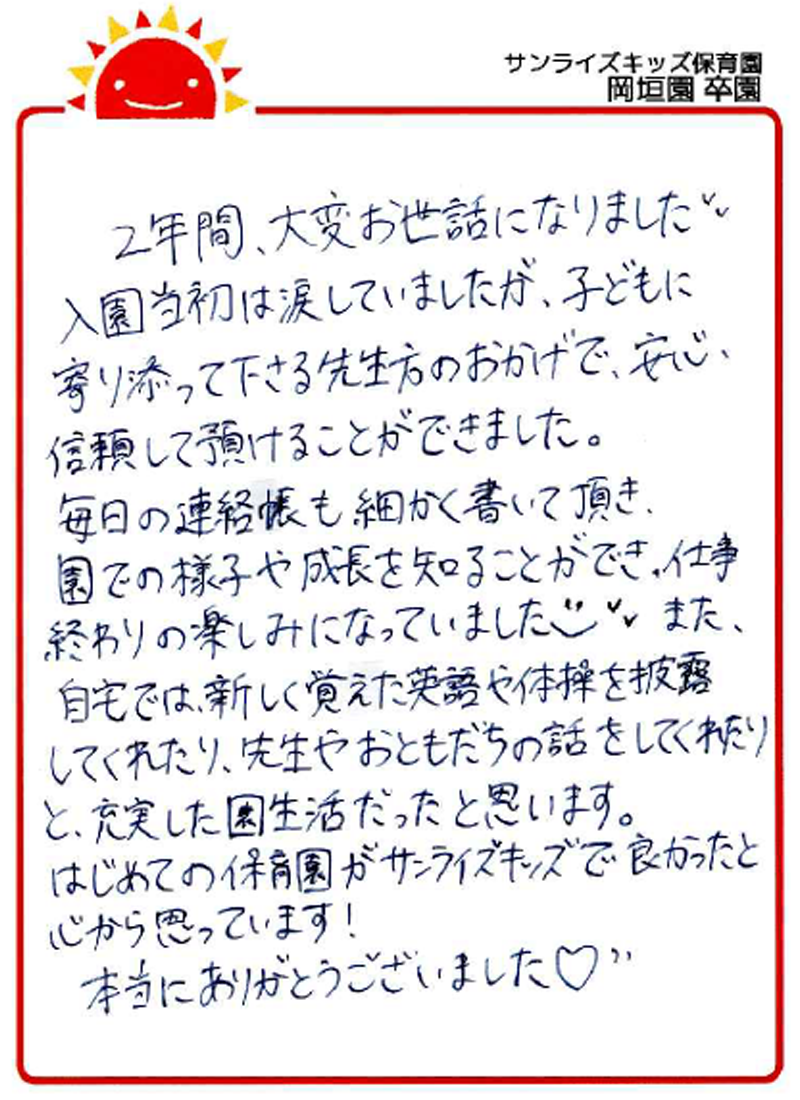 サンライズキッズ保育園
岡垣園 卒園
2年間、大変お世話になりました
入園当初は涙していましたが、子どもに
寄り添って下さる先生方のおかげで、安心、
信頼して預けることができました。
毎日の連絡帳も細かく書いて頂き、
園での様子や成長を知ることができ、仕事
終わりの楽しみになっていました また、
自宅では、新しく覚えた英語や体操を披露
してくれたり、先生やおともだちの話をしてくれたり
と、充実した園生活だったと思います。
はじめての保育園がサンライズキッズで良かったと
心から思っています!
本当にありがとうございました♡